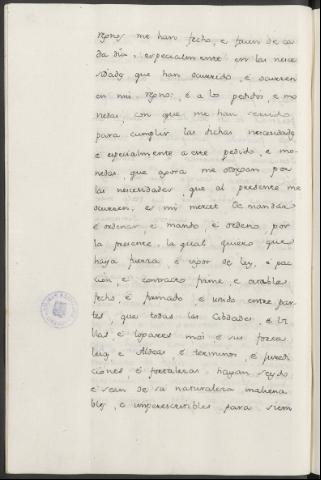 Rẽgnos me han fecho, e facen de ca
da dia, especialmente en las nece
sidades que han ocurrido, e ocurren
en mis Regnos: é a los pedidos, e mo
nedas, con que me han servido
para cumplir las dichas necesidades
e especialmente a este pedido, e mo
nedas, que agora me otorgan por
las necesidades, que al presente me
ocurren, es mi merced de mandar
é ordenar, e mando, é ordeno, por
la presente, la qual quiero que
haya fuerza é vigor de ley, e pac
ción, e contracto firme, e estable
fecho, é firmado, e unido entre par
tes, que todas las Cibdades, é Vi
llas, é logares mios é sus forta
lezas, é Aldeas é terminos, é juredi
ciones, é fortalezas hayan seydo
e sean de su naturaleza inaliena
bles, e imprescriptibles, para siem